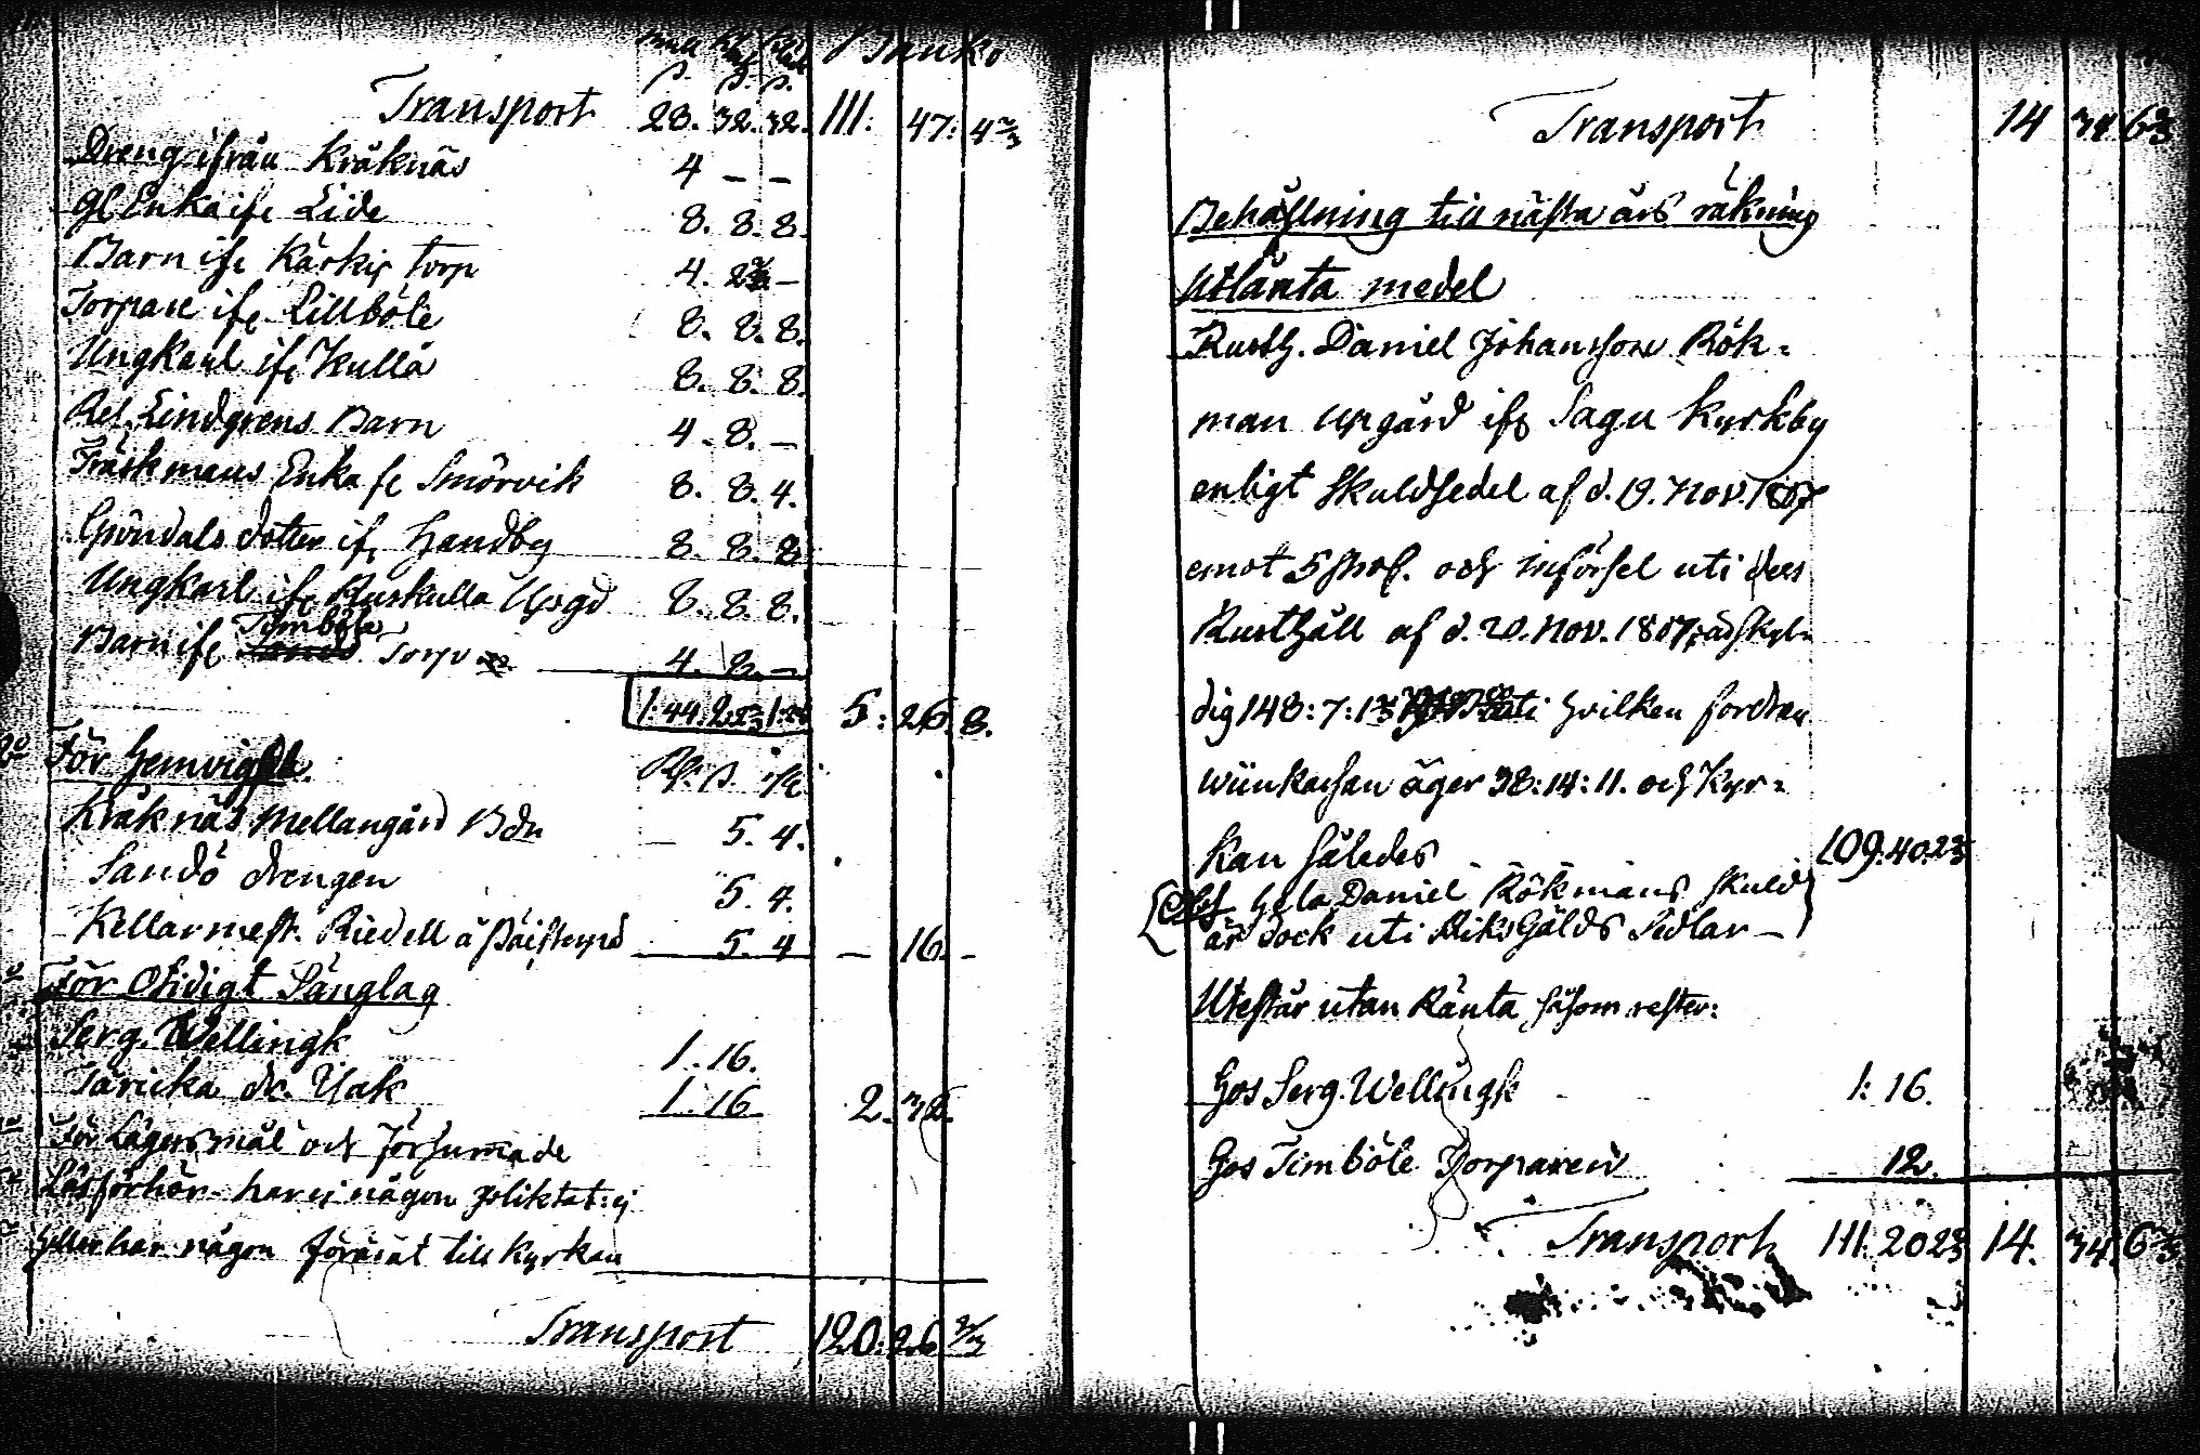 Banko
ß. ß. ß.
Transport 28. 32. 32. 111: 47: 4 2/3
Dreng ifrån Kråknäs 4 – –
Gl Enka ifr Lide 8. 8. 8.
Barn ifr Kärkis torp 4. –
Torpare ifr Lillböle 8. 8. 8.
Ungkarl ifr Kulla 8. 8. 8.
Ref. Lindgrens Barn 4. 8. –
Träskmans Enka fr Smörvik 8. 8. 4.
Gröndals dotter ifr Handby 8. 8. 8
Ungkarl ifr Ruskulla Upgd 8. 8. 8.
Timböle
Barn ifr Torp 4. 8. –
1:44. 5: 26. 8.
För Hemvigsel. Rf. ß. r.
Kråknäs Mellangård Bdn – 5. 4.
Sandö drengen 5. 4.
Kellarmest. Riedell å 5. 4 – 16. –
För Otidigt Sänglag
Serg. Wellingk 1. 16.
dr. 1. 16 2. 32.
För Lägersmål och försumade
Läsförhör har ej någon pliktat: ej
heller har någon förärat till Kyrkan
Transport 120: 26 2/3
Transport 14 34 6 2/3
Behållning till nästa års räkning
Utlånta medel
Rusth. Daniel Johansson Rök=
man Upgård ifr Sagu Kyrkby
enligt Skuldsedel af d. 19. Nov. 1807
emot 5 proc. och införsel uti dess
Rusthåll af d. 20. Nov. 1807, är skyl=
dig 148: 7: 1 uti hvilken fordran
wiinkassan äger 38: 14: 11. och Kyr=
kan således 109. 40. 2 2/3
[Obs hela Daniel Rökmans skuld
är dock uti RiksGälds Sedlar –
Utestår utan Ränta såsom rester:
Hos Serg. Wellingk 1: 16.
Hos Timböle Torparen 12.
Transport 111. 20 2 2/3 14. 34. 6 2/3